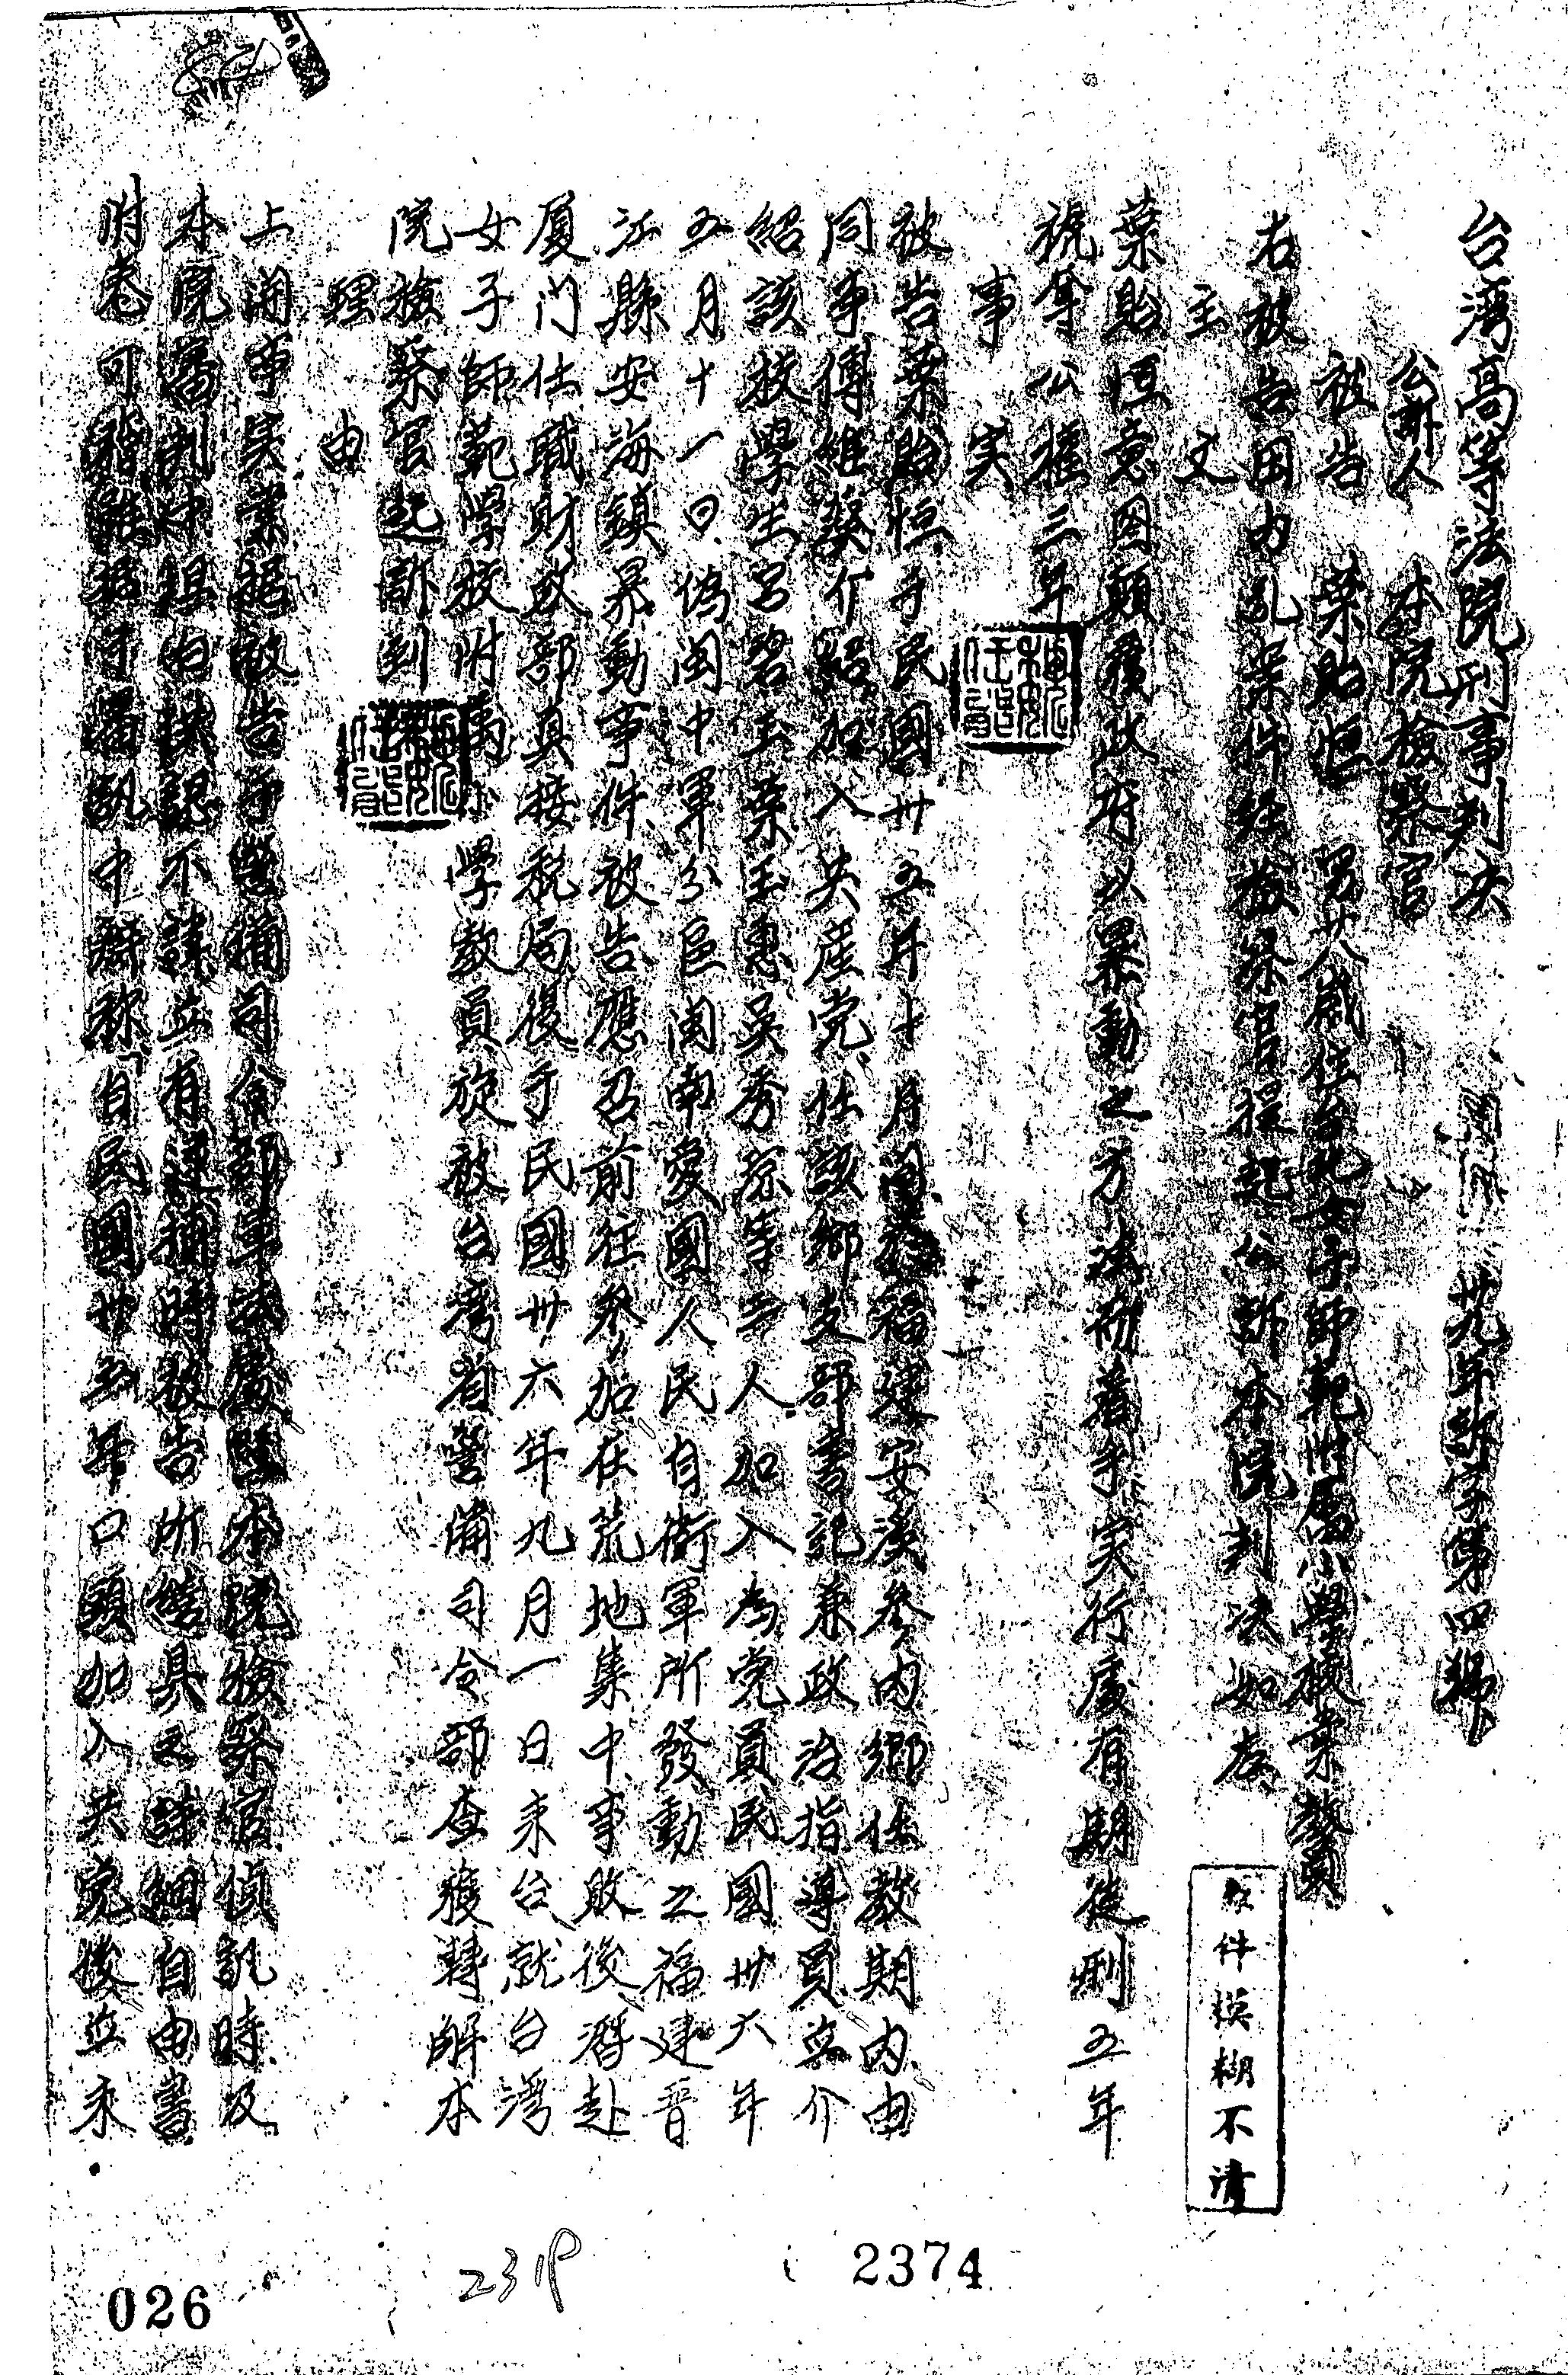 台灣高等法院刑事判決 卅九年訴字第四號
公訴人 本院檢察官
被告 葉貽恒 男廿八歲住台北女子師範附屬小學校業教員
右被告因內乱案件經檢察官提起公訴本院判決如左
主 文
葉貽恒意圖顛覆政府以暴動之方法而着手实行處有期徒刑五年
褫奪公權三年
事 实
被告葉貽恒于民國卅五年十月間於福建安溪參內鄉任教期內由
同事傅維葵介紹加入共產党任該鄉支部書記兼政治指導員並介
紹該校學生呂碧玉葉玉惠吳秀琼等三人加入為党員民國卅六年
五月十一日偽閩中軍分區閩南愛國人民自衛軍所發動之福建晋
江縣安海鎮暴動事件被告應召前往參加在荒地集中事敗後潛赴
厦门任職財政部直接稅局後于民國卅六年九月一日來台就台灣
女子師範學校附屬小學教員旋被台灣省警備司令部查獲轉解本
院檢察官起訴到
理 由
上開事实業据被告于警備司令部軍法處暨本院檢察官偵訊時及
本院審判中坦白供認不諱並有逮捕時被告所繕具之詳細自由書
附卷可稽雖据于審訊中辯称「自民國卅五年口頭加入共党後並未
原件模糊不清
2374
026